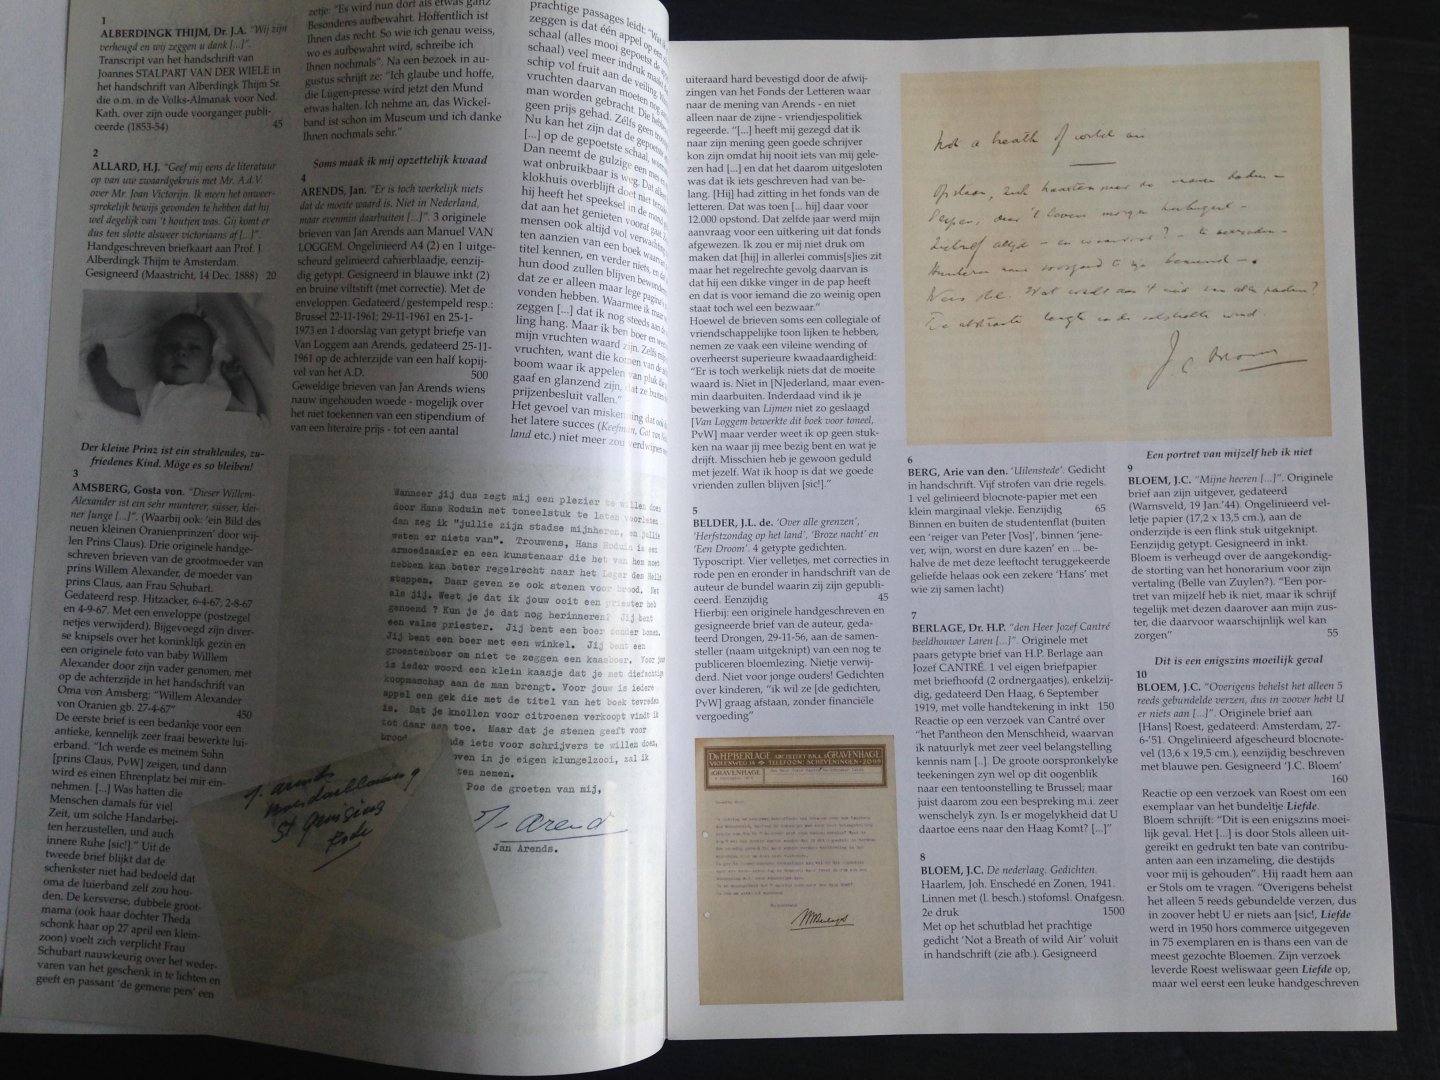 1
ALBERDINGK THIJM, Dr. J.A. "Wij zijn
verheugd en wij zeggen u dank [...]".
Transcript van het handschrift van
Joannes STALPART VAN DER WIELE in
het handschrift van Alberdingk Thijm Sr.
die o.m. in de Volks-Almanak voor Ned.
Kath. over zijn oude voorganger publi-
ceerde (1853-54) 45
2
ALLARD, H.J. "Geef mij eens de literatuur
op van uw zwaardgekruis met Mr. A.d.V.
over Mr. Joan Victorijn. Ik meen het onweer-
sprekelijk bewijs gevonden te hebben dat hij
wel degelijk van 't houtjen was. Gij komt er
dus ten slotte alsweer victoriaans af [...]".
Handgeschreven briefkaart aan Prof. J.
Alberdingk Thijm te Amsterdam.
Gesigneerd (Maastricht, 14 Dec. 1888) 20
Der kleine Prinz ist ein strahlendes, zu-
friedenes Kind. Möge es so bleiben!
3
AMSBERG, Gosta von. "Dieser Willem-
Alexander ist ein sehr munterer, süsser, klei-
ner Junge [...]". (Waarbij ook: 'ein Bild des
neuen kleinen Oranienprinzen' door wij-
len Prins Claus). Drie originele handge-
schreven brieven van de grootmoeder van
prins Willem Alexander, de moeder van
prins Claus, aan Frau Schubart.
Gedateerd resp. Hitzacker, 6-4-67, 2-8-67
en 4-9-67. Met een enveloppe (postzegel
netjes verwijderd). Bijgevoegd zijn diver-
se knipsels over het koninklijk gezin en
een originele foto van baby Willem
Alexander door zijn vader genomen, met
op de achterzijde in het handschrift van
Oma von Amsberg: "Willem Alexander
von Oranien gb. 27-4-67" 450
De eerste brief is een bedankje voor een
antieke, kennelijk zeer fraai bewerkte lui-
erband. "Ich werde es meinem Sohn
[prins Claus, PvW] zeigen, und dann
wird es einen Ehrenplatz bei mir ein-
nehmen. [...] Was hatten die
Menschen damals für viel
Zeit, um solche Handarbei-
ten herzustellen, und auch
innere Ruhe [sic!]." Uit de
tweede brief blijkt dat de
schenkster niet had bedoeld dat
oma de luierband zelf zou hou-
den. De kersverse, dubbele groot-
mama (ook haar dochter Theda
schonk haar op 27 april een klein-
zoon) voelt zich verplicht Frau
Schubart nauwkeurig over het weder-
varen van het geschenk in te lichten en
geeft en passant 'de gemene pers' een
zetje: "Es wird nun dort als etwas ganz
Besonderes aufbewahrt. Hoffentlich ist
Ihnen das recht. So wie ich genau weiss,
wo es aufbewahrt wird, schreibe ich
Ihnen nochmals". Na een bezoek in au-
gustus schrijft ze: "Ich glaube und hoffe,
die Lügen-presse wird jetzt den Mund
etwas halten. Ich nehme an, das Wickel-
band ist schon im Museum und ich danke
Ihnen nochmals sehr."
Soms maak ik mij opzettelijk kwaad
4
ARENDS, Jan. "Er is toch werkelijk niets
dat de moeite waard is. Niet in Nederland,
maar evenmin daarbuiten [...]". 3 originele
brieven van Jan Arends aan Manuel VAN
LOGGEM. Ongelinieerd A4 (2) en 1 uitge-
scheurd gelinieerd cahierblaadje, eenzij-
dig getypt. Gesigneerd in blauwe inkt (2)
en bruine viltstift (met correctie). Met de
enveloppen. Gedateerd/gestempeld resp.:
Brussel 22-11-1961; 29-11-1961 en 25-1-
1973 en 1 doorslag van getypt briefje van
Van Loggem aan Arends, gedateerd 25-11-
1961 op de achterzijde van een half kopij-
vel van het A.D. 500
Geweldige brieven van Jan Arends wiens
nauw ingehouden woede - mogelijk over
het niet toekennen van een stipendium of
van een literaire prijs - tot een aantal
prachtige passages leidt:
zeggen is dat één appel op een
schaal (alles mooi gepoetst de
schaal) veel meer indruk maakt
schip vol fruit aan de veiling.
vruchten daarvan moeten nog aan
man worden gebracht. Die hebben
geen prijs gehad. Zélfs geen
Nu kan het zijn dat de gepoetste
[...] op de gepoetste schaal,
Dan neemt de gulzige een mes en
wat onbruikbaar is weg. Dat
klokhuis overblijft doet niet
hij heeft het speeksel in de mond,
dat aan het genieten vooraf gaat.
mensen ook altijd vol verwachting
ten aanzien van een boek waarvan
titel kennen, en verder niets, en
hun dood zullen blijven bewonderen
dat ze er alleen maar lege pagina's
vonden hebben. Waarmee ik maar
zeggen [...] dat ik nog steeds aan de
ling hang. Maar ik ben boer en
mijn vruchten waard zijn. Zelfs
vruchten, want die komen van de
boom waar ik appelen van pluk die
gaaf en glanzend zijn, dat ze buiten
prijzenbesluit vallen."
Het gevoel van miskenning dat ook
het latere succes (Keefman,
land etc.) niet meer zou verdwijnen
Wanneer jij dus zegt mij een plezier te willen doen
door Hans Roduin met toneelstuk te laten voorlezen
dan zeg ik "jullie zijn stadse mijnheren, en jullie
weten er niets van". Trouwens, Hans Roduin is een
armoedzaaier en een kunstenaar die het van hem moet
hebben kan beter regelrecht naar het Leger des Heils
stappen. Daar geven ze ook stenen voor brood. Net
als jij. Weet je dat ik jouw ooit een priester heb
genoemd ? Kun je je dat nog herinneren? Jij bent
een valse priester. Jij bent een boer zonder bomen.
Jij bent een boer met een winkel. Jij bent een
groentenboer om niet te zeggen een kaasboer. Voor jouw
is ieder woord een klein kaasje dat je met diefachtige
koopmanschap aan de man brengt. Voor jouw is iedere
appel een gek die met de titel van het boek tevreden
is. Dat je knollen voor citroenen verkoopt vindt ik
tot daar aan toe. Maar dat je stenen geeft voor
brood
iets voor schrijvers te willen doen,
oven in je eigen klungelzooi, zal ik
ten nemen.
Poe de groeten van mij,
J. Arends
Jan Arends.
J. Arends
St. Genesius
Rode
uiteraard hard bevestigd door de afwij-
zingen van het Fonds der Letteren waar
naar de mening van Arends - en niet
alleen naar de zijne - vriendjespolitiek
regeerde. "[...] heeft mij gezegd dat ik
naar zijn mening geen goede schrijver
kon zijn omdat hij nooit iets van mij gele-
zen had [...] en dat het daarom uitgesloten
was dat ik iets geschreven had van be-
lang. [Hij] had zitting in het fonds van de
letteren. Dat was toen [... hij] daar voor
12.000 opstond. Dat zelfde jaar werd mijn
aanvraag voor een uitkering uit dat fonds
afgewezen. Ik zou er mij niet druk om
maken dat [hij] in allerlei commis[s]ies zit
maar het regelrechte gevolg daarvan is
dat hij een dikke vinger in de pap heeft
en dat is voor iemand die zo weinig open
staat toch wel een bezwaar."
Hoewel de brieven soms een collegiale of
vriendschappelijke toon lijken te hebben,
nemen ze vaak een vileine wending of
overheerst superieure kwaadaardigheid:
"Er is toch werkelijk niets dat de moeite
waard is. Niet in [N]ederland, maar even-
min daarbuiten. Inderdaad vind ik je
bewerking van Lijmen niet zo geslaagd
[Van Loggem bewerkte dit boek voor toneel,
PvW] maar verder weet ik op geen stuk-
ken na waar jij mee bezig bent en wat je
drijft. Misschien heb je gewoon geduld
met jezelf. Wat ik hoop is dat we goede
vrienden zullen blijven [sic!]."
5
BELDER, J.L. de. 'Over alle grenzen',
'Herfstzondag op het land', 'Broze nacht' en
'Een Droom'. 4 getypte gedichten.
Typoscript. Vier velletjes, met correcties in
rode pen en eronder in handschrift van de
auteur de bundel waarin zij zijn gepubli-
ceerd. Eenzijdig 45
Hierbij: een originele handgeschreven en
gesigneerde brief van de auteur, geda-
teerd Drongen, 29-11-56, aan de samen-
steller (naam uitgeknipt) van een nog te
publiceren bloemlezing. Nietje verwij-
derd. Niet voor jonge ouders! Gedichten
over kinderen, "ik wil ze [de gedichten,
PvW] graag afstaan, zonder financiële
vergoeding"
Dr. H.P. BERLAGE ARCHITECT B.N.A. 'S GRAVENHAGE
VIOLENWEG 14 TELEFOON SCHEVENINGEN 2099
'S GRAVENHAGE
HPBerlage
Not a breath of wild air
J. C. Bloem
6
BERG, Arie van den. 'Uilenstede'. Gedicht
in handschrift. Vijf strofen van drie regels.
1 vel gelinieerd blocnote-papier met een
klein marginaal vlekje. Eenzijdig 65
Binnen en buiten de studentenflat (buiten
een 'reiger van Peter [Vos]', binnen 'jene-
ver, wijn, worst en dure kazen' en ... be-
halve de met deze leeftocht teruggekeerde
geliefde helaas ook een zekere 'Hans' met
wie zij samen lacht)
7
BERLAGE, Dr. H.P. "den Heer Jozef Cantré
beeldhouwer Laren [...]". Originele met
paars getypte brief van H.P. Berlage aan
Jozef CANTRÉ. 1 vel eigen briefpapier
met briefhoofd (2 ordnergaatjes), enkelzij-
dig, gedateerd Den Haag, 6 September
1919, met volle handtekening in inkt 150
Reactie op een verzoek van Cantré over
"het Pantheon den Menschheid, waarvan
ik natuurlyk met zeer veel belangstelling
kennis nam [..]. De groote oorspronkelyke
teekeningen zyn wel op dit oogenblik
naar een tentoonstelling te Brussel; maar
juist daarom zou een bespreking m.i. zeer
wenschelyk zyn. Is er mogelykheid dat U
daartoe eens naar den Haag Komt? [...]"
8
BLOEM, J.C. De nederlaag. Gedichten.
Haarlem, Joh. Enschedé en Zonen, 1941.
Linnen met (l. besch.) stofomsl. Onafgesn.
2e druk 1500
Met op het schutblad het prachtige
gedicht 'Not a Breath of wild Air' voluit
in handschrift (zie afb.). Gesigneerd
Een portret van mijzelf heb ik niet
9
BLOEM, J.C. "Mijne heeren [...]". Originele
brief aan zijn uitgever, gedateerd
(Warnsveld, 19 Jan.'44). Ongelinieerd vel-
letje papier (17,2 x 13,5 cm.), aan de
onderzijde is een flink stuk uitgeknipt.
Eenzijdig getypt. Gesigneerd in inkt.
Bloem is verheugd over de aangekondig-
de storting van het honorarium voor zijn
vertaling (Belle van Zuylen?). "Een por-
tret van mijzelf heb ik niet, maar ik schrijf
tegelijk met dezen daarover aan mijn zus-
ter, die daarvoor waarschijnlijk wel kan
zorgen" 55
Dit is een enigszins moeilijk geval
10
BLOEM, J.C. "Overigens behelst het alleen 5
reeds gebundelde verzen, dus in zoover hebt U
er niets aan [...]". Originele brief aan
[Hans] Roest, gedateerd: Amsterdam, 27-
6-'51. Ongelinieerd afgescheurd blocnote-
vel (13,6 x 19,5 cm.), eenzijdig beschreven
met blauwe pen. Gesigneerd 'J.C. Bloem'
160
Reactie op een verzoek van Roest om een
exemplaar van het bundeltje Liefde.
Bloem schrijft: "Dit is een enigszins moei-
lijk geval. Het [...] is door Stols alleen uit-
gereikt en gedrukt ten bate van contribu-
anten aan een inzameling, die destijds
voor mij is gehouden". Hij raadt hem aan
er Stols om te vragen. "Overigens behelst
het alleen 5 reeds gebundelde verzen, dus
in zoover hebt U er niets aan [sic!, Liefde
werd in 1950 hors commerce uitgegeven
in 75 exemplaren en is thans een van de
meest gezochte Bloemen. Zijn verzoek
leverde Roest weliswaar geen Liefde op,
maar wel eerst een leuke handgeschreven